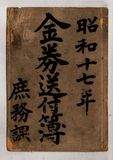 昭和十七年
金券送付簿
庶務課